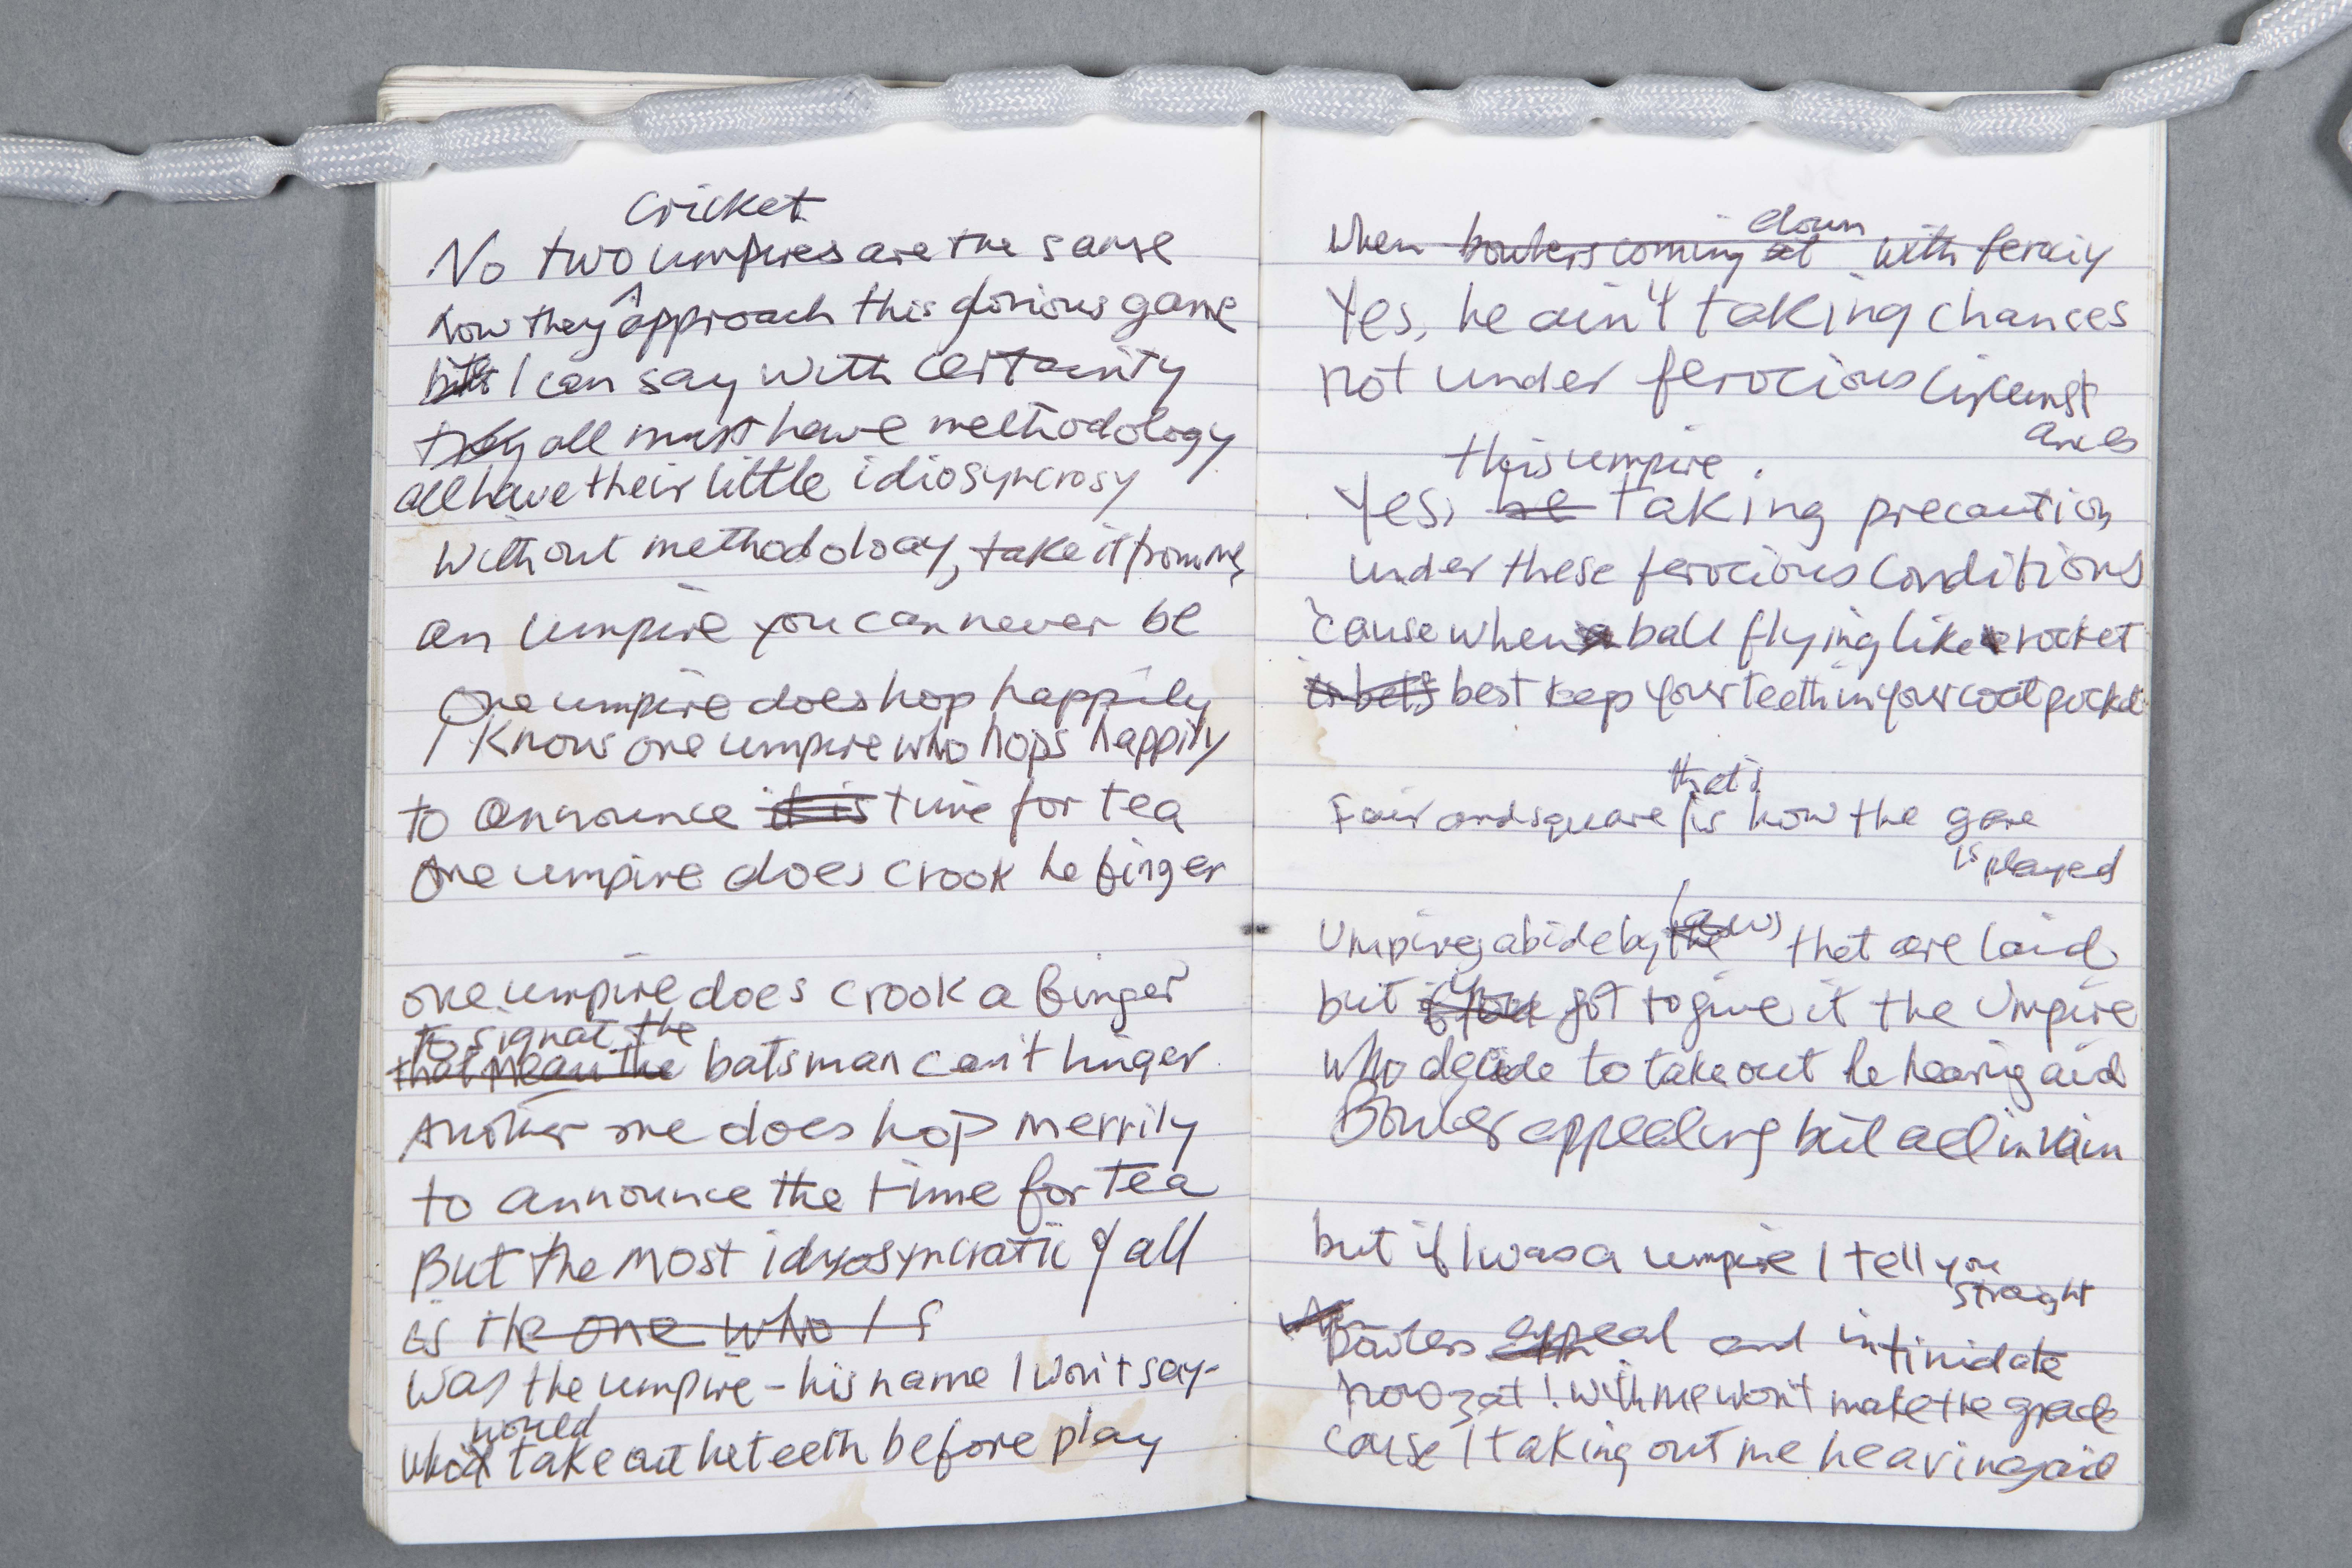 cricket
No two umpires are the same
how they ^ approach this glorious game
but I can say with certainty
they all must have methodology
all have their little idiosyncrosy
Without methodology, take it from me,
an umpire you can never be
One umpire does hop happily
I know one umpire who hops happily
to announce it is time for tea
One umpire does crook he finger
one umpire does crook a finger
to signal the
that mean the batsman can't linger
Another one does hop merrily
to announce the time for Tea
But the most idyosyncratic of all
is the one who I f
Was the umpire - his name I won't say -
would
who take out he teeth before play
down
When bowlers coming at with ferociy
Yes, he ain't taking chances
not under ferocious circumst
ances
this umpire
Yes, he taking precaution
under these ferocious conditions
'cause when a ball flying like a rocket
is best best keep your teeth in your coat pocket
that's
Fair and square is how the game
is played
laws
Umpires abide by the that are laid
but if you got to give it the Umpire
who decide to take out he hearing aid
Bowler appealing but all in vain
but if I was a umpire I tell you
straight
Bowlers appeal and intimidate
howzat! with me won't make the grade
cause I taking out me hearing aid